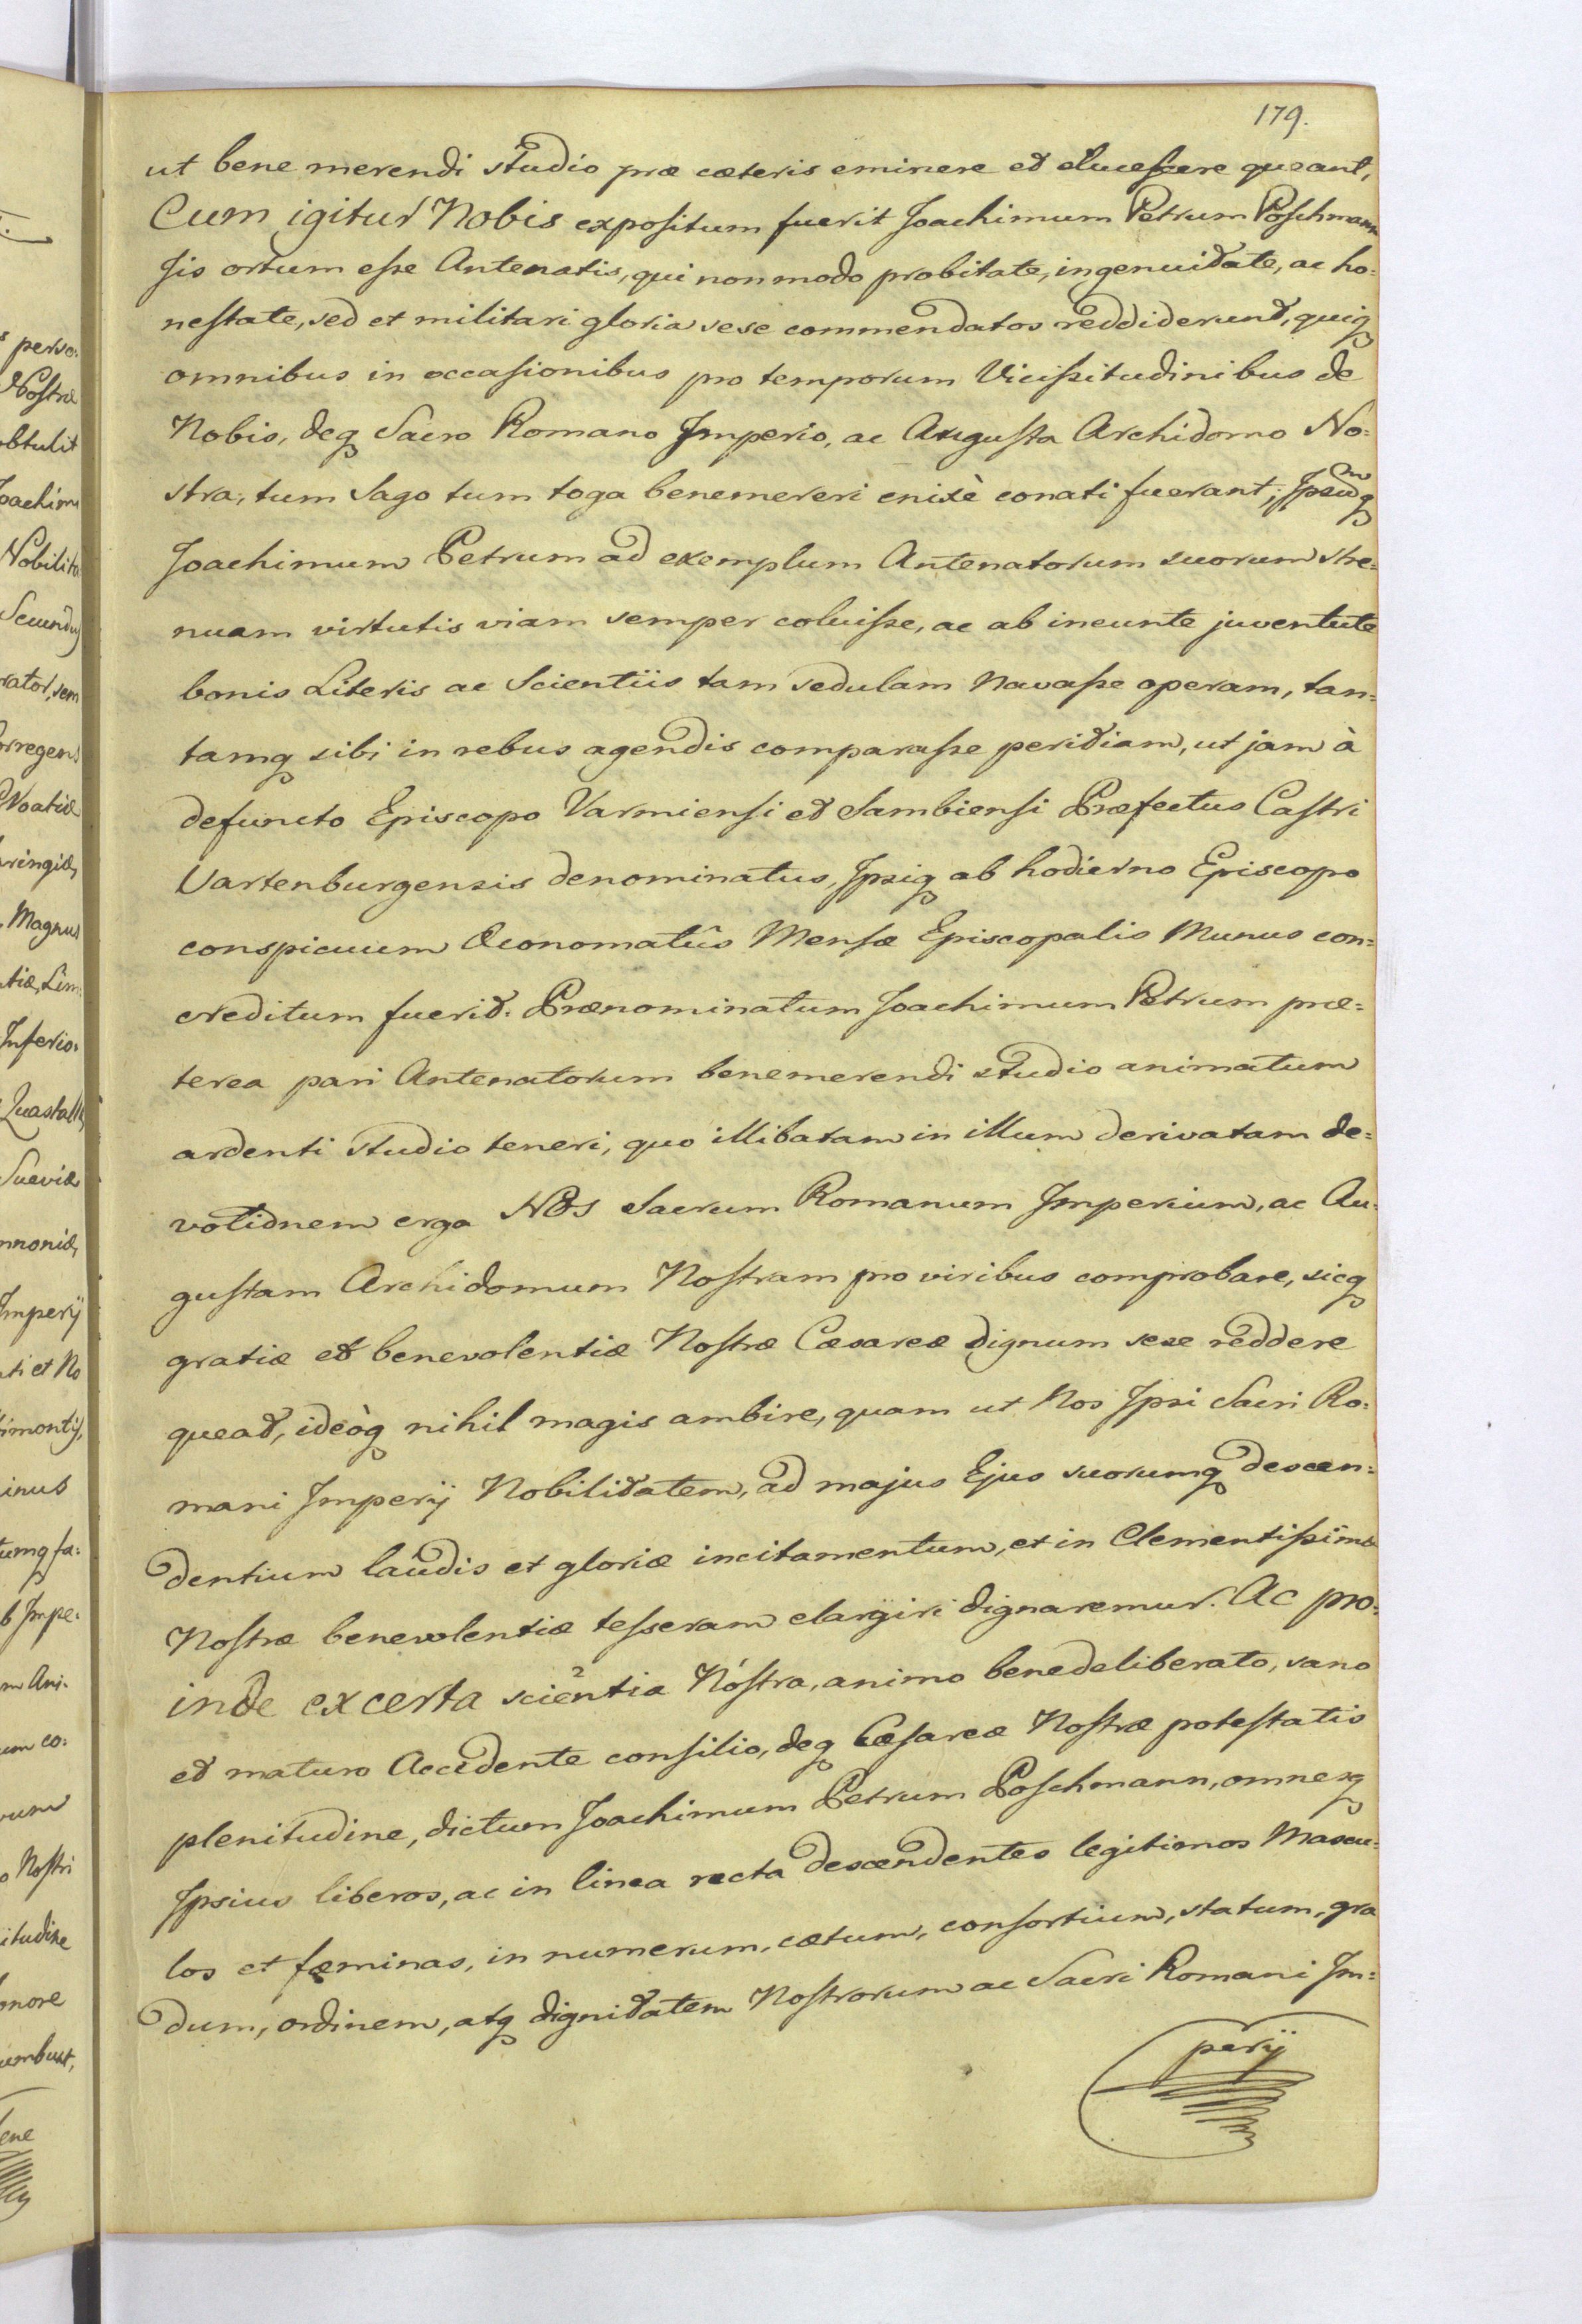 179.
ut bene merendi studio præ cæteris eminere et elucescere queant,
Cum igitur Nobis expositum fuerit Joachimum Petrum Poschmann
sis ortum esse Antenatis, qui non modo probitate, ingenuitate, ac ho=
nestate, sed et militari gloria sese commendatos reddiderunt, quiq
omnibus in occasionibus pro temporum Vicissitudinibus de
Nobis, deq Sacro Romano Imperio, ac Augusta Archidomo No=
stra, tum Sago tum toga benemereri enixè conati fuerant; Ipsumq
Joachimum Petrum ad exemplum Antenatorum suorum stre=
nuam virtutis viam semper coluisse, ac ab ineunte juventute
bonis Literis ac Scientiis tam sedulam Navasse operam, tan=
tamq sibi in rebus agendis comparasse peritiam, ut jam à
defuncto Episcopo Varmiensi et Sambiensi Præfectus Castri
Vartenburgensis denominatus, Ipsiq ab hodierno Episcopo
conspicuum Oeconomatûs Mensæ Episcopalis Munus con=
creditum fuerit. Prænominatum Joachimum Petrum præ=
terea pari Antenatorum benemerendi studio animatum
ardenti studio teneri, quo illibatam in illum derivatam de=
votionem erga Nos Sacrum Romanum Imperium, ac Au=
gustam Archidomum Nostram pro viribus comprobare, sicq
gratiæ et benevolentiæ Nostræ Cæsareæ dignum sese reddere
queat, ideòq nihil magis ambire, quam ut Nos Ipsi Sacri Ro=
mani Imperij Nobilitatem, ad majus Ejus suorumq descen=
dentium laudis et gloriæ incitamentum, et in Clementissimæ
Nostræ benevolentiæ tesseram elargiri dignaremur. Ac pro=
inde ex certa scientia Nostra, animo benedeliberato, sano
et maturo Accedente consilio, deq Cæsareæ Nostræ potestatis
plenitudine, dictum Joachimum Petrum Poschmann, omnesq
Ipsius liberos, ac in linea recta descendentes legitimos Mascu=
los et fæminas, in numerum, cætum, consortium, statum, gra
dum, ordinem, atq dignitatem Nostrorum ac Sacri Romani Im=
perij